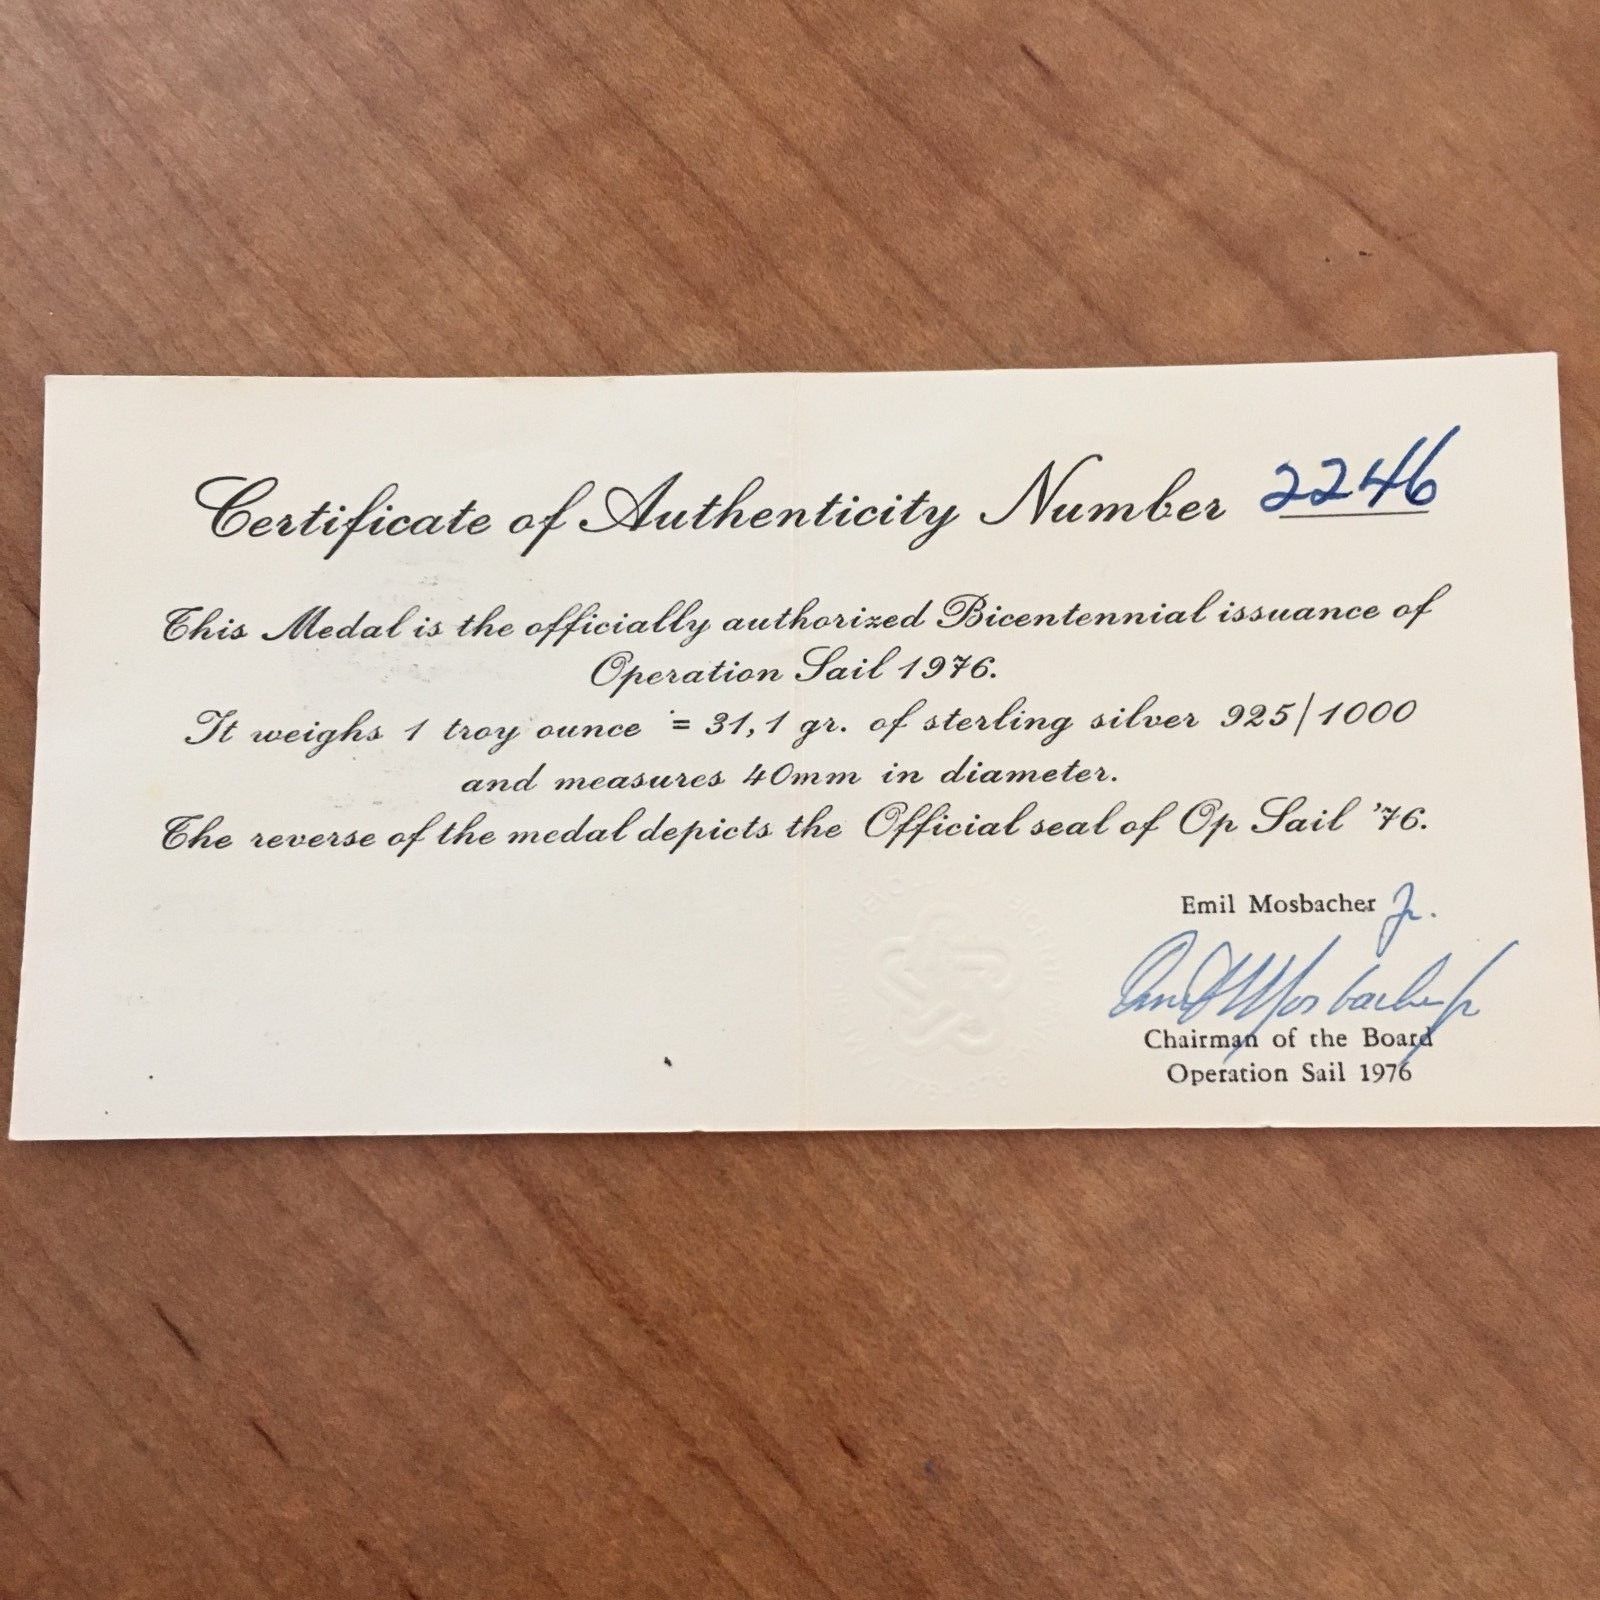 Certificate of Authenticity Number 2246
This Medal is the officially authorized Bicentennial issuance of
Operation Sail 1976.
It weighs 1 troy ounce = 31,1 gr. of sterling silver 925/1000
and measures 40mm in diameter.
The reverse of the medal depicts the Official seal of Op Sail '76.
Emil Mosbacher Jr.
Emil Mosbacher Jr
Chairman of the Board
Operation Sail 1976